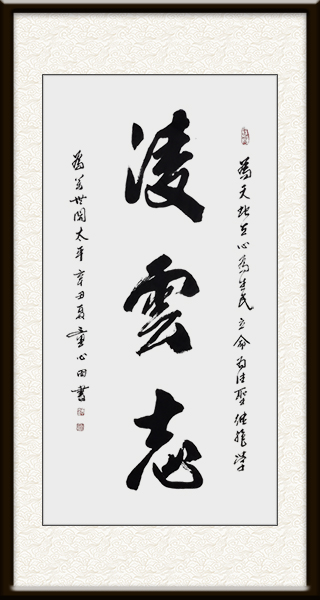 凌雲志
為天地立心為生民立命為往聖继絶学
為萬世開太平辛丑夏童心田書